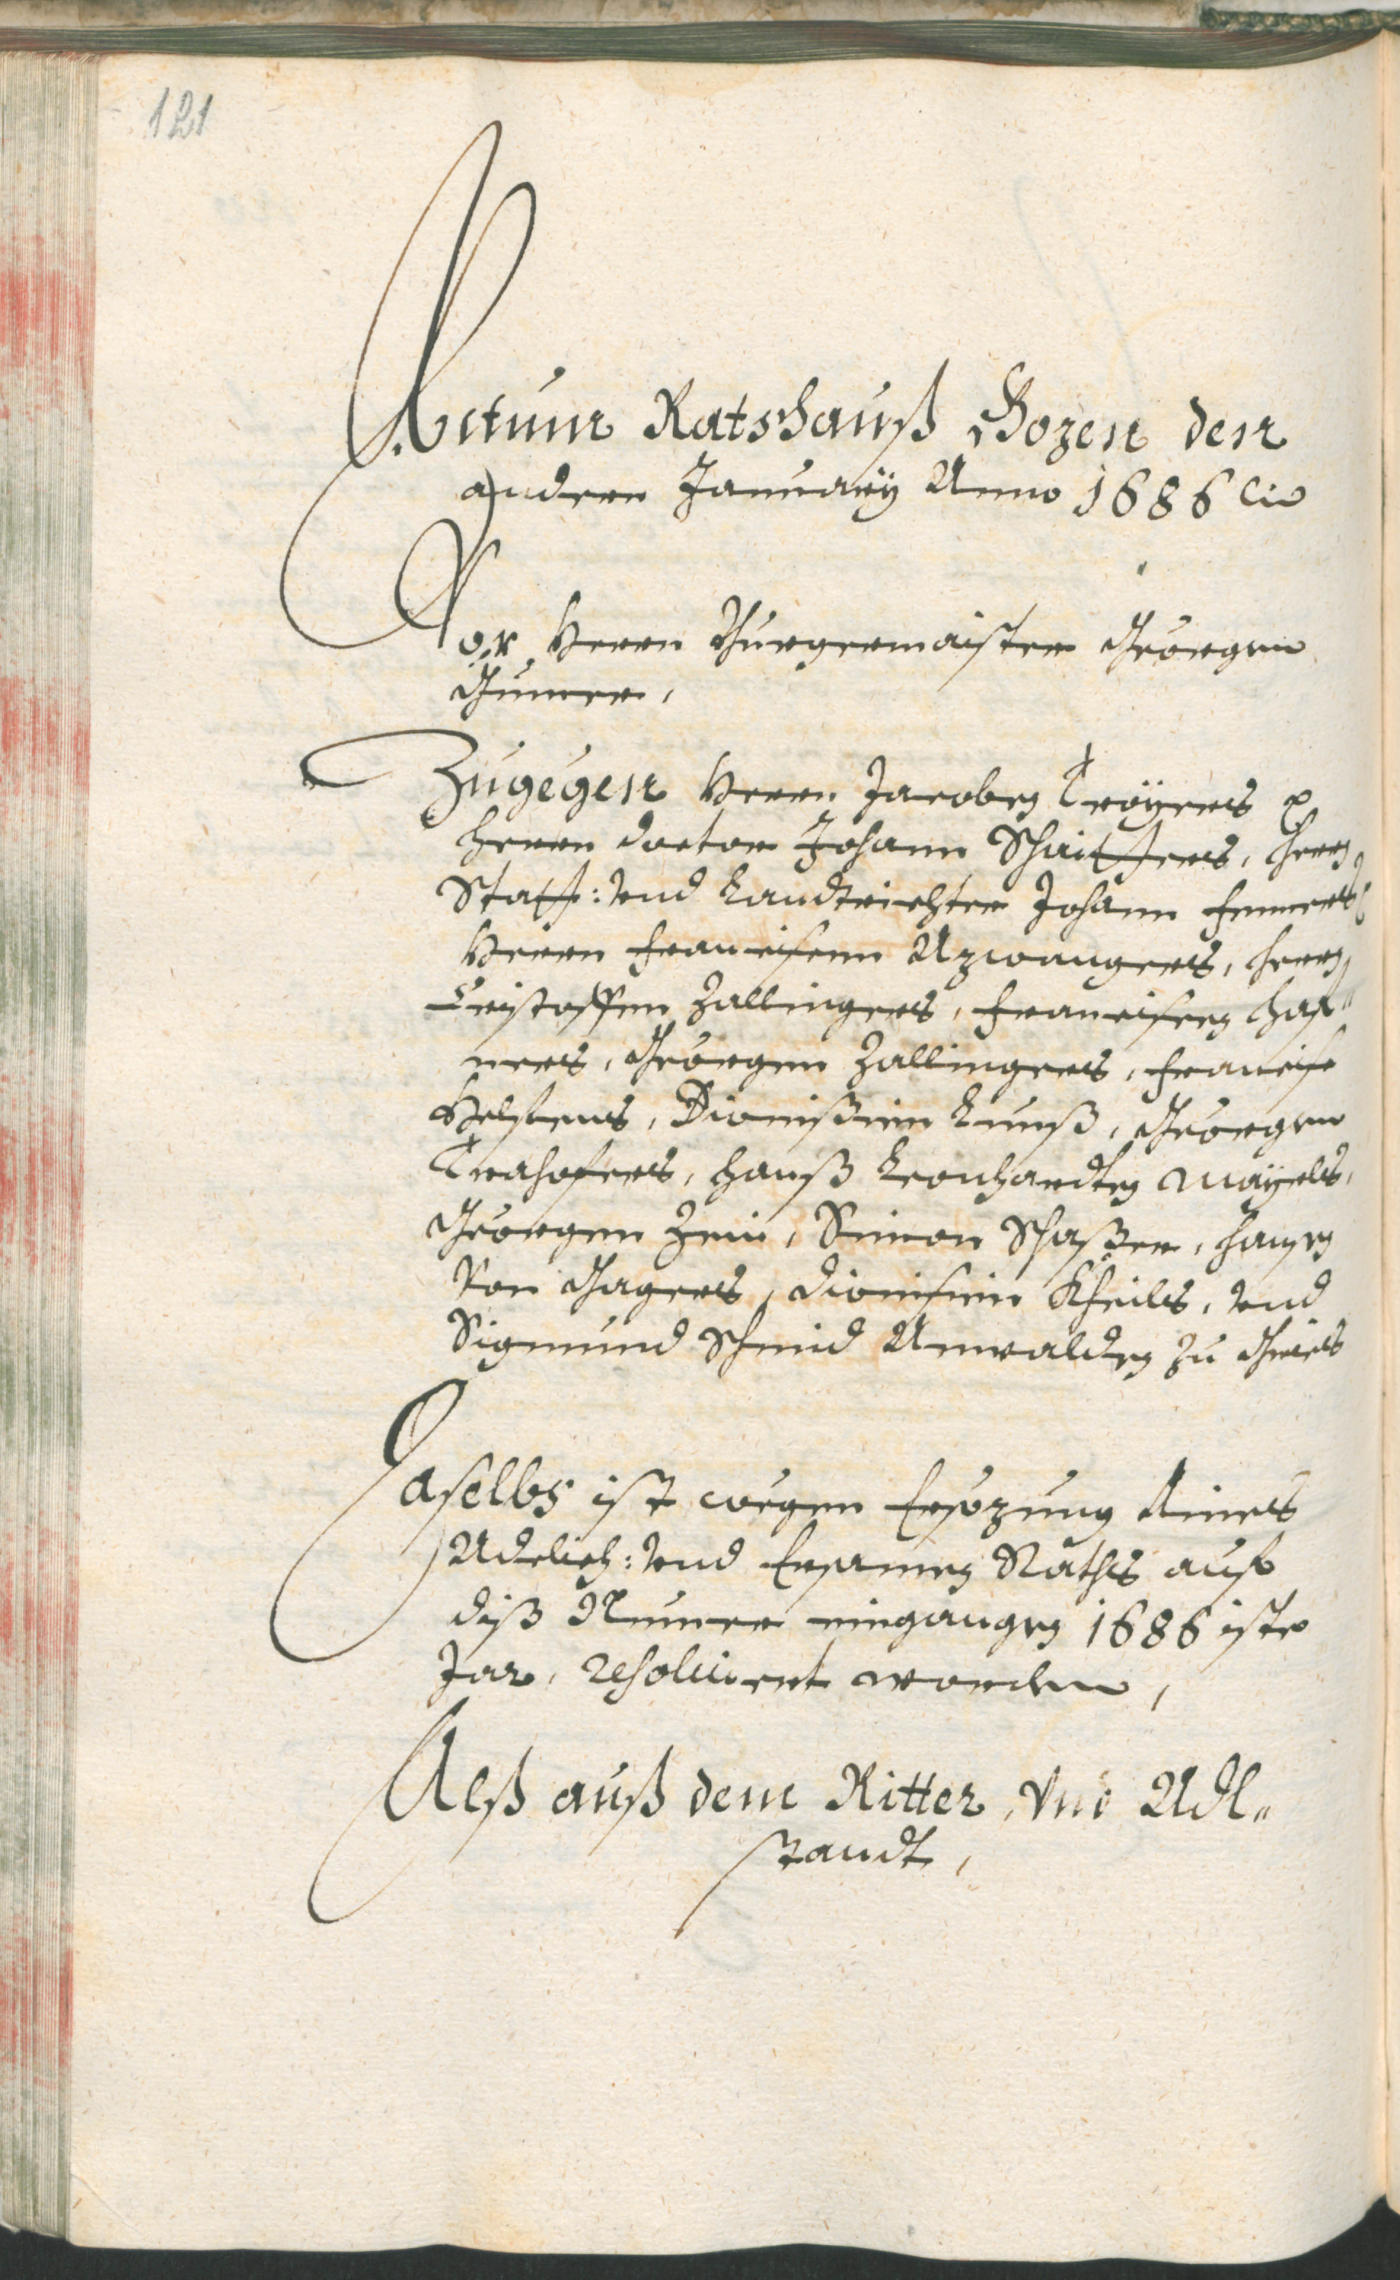 121
Actum Ratshauß Bozen den
andern January Anno 1686 etc
Vor Herrn Burgermaister Georgen
Gumer,
Zugegen Herrn Jacoben Troÿers p
Herrn doctor Johann Herrn
Statt: vnd Landtrichter Johann
Herrn Francisen Azwangers, Herrn
Cristoffen Zallingers, Francisen Haf-
ners, Georgen Zallingers, Francisc
Dionisien Georgen
Trahofers, Hanß Leonhardten Mayrls,
Georgen Simon Hansen
Von Dionisien vnd
Sigmund Schmid Anwalden zu Gries
Daselbs ist wegen Ersezung Aines
Adelich: vnd Ersamen Raths auf
diß Neuer eingangen 1686 iste
Jar, resoluiert worden,
Alß auß dem Ritter, vnd Adl-
standt,